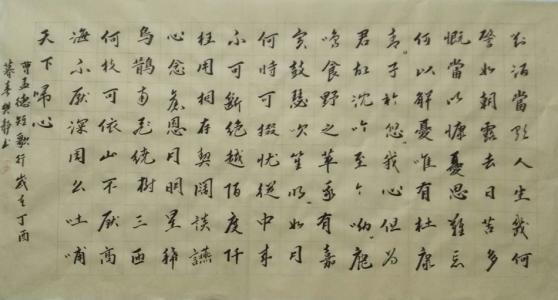 对酒當歌人生幾何
譬如朝露去日苦多
慨當以慷憂思難忘
何以解憂唯有杜康
青、子衿悠、我心但为
君故沈吟至今呦、鹿
鳴食野之苹我有嘉
賓鼓瑟吹笙明、如月
何時可掇忧從中来
不可斷絕越陌度阡
枉用相存契闊談讌
心念舊恩月明星稀
烏鵲南飛繞樹三匝
何枝可依山不厭高
海不厭深周公吐哺
天下歸心
曹孟德短歌行歲在丁酉
暮春